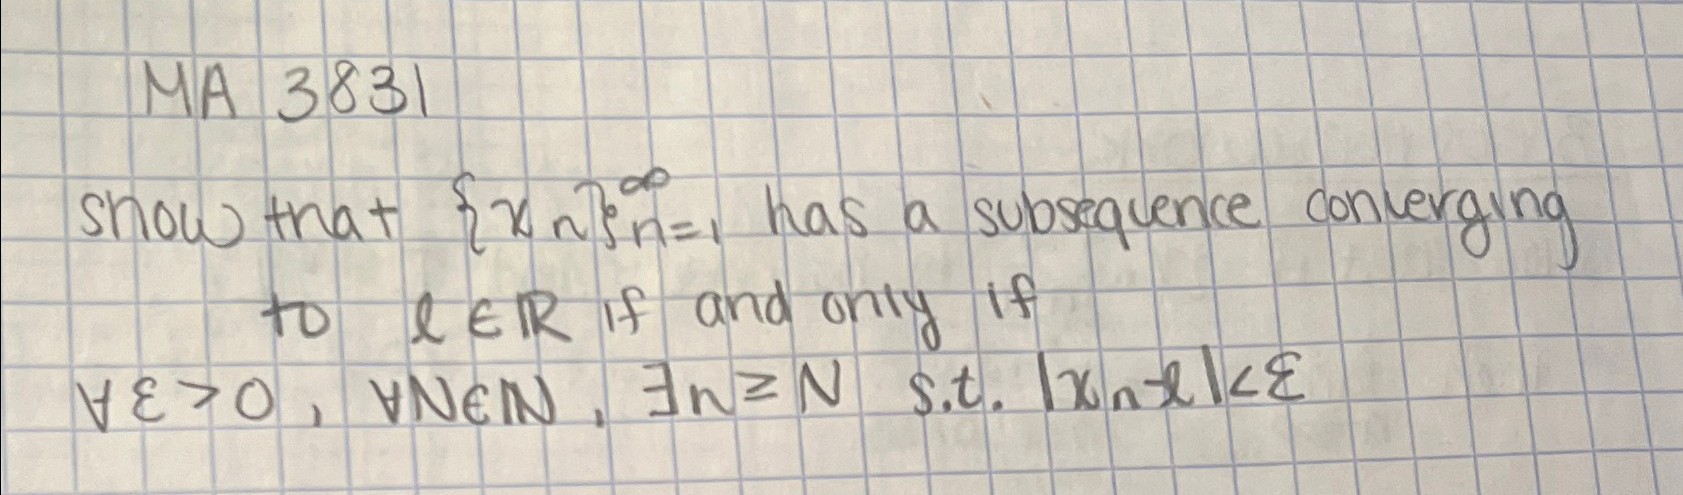 MA 3831
show that {xn}∞n=1 has a subsequence converging
to l∈ℝ if and only if
∀ε>0, ∀N∈ℕ, ∃n≥N s.t. |xn-l|<ε